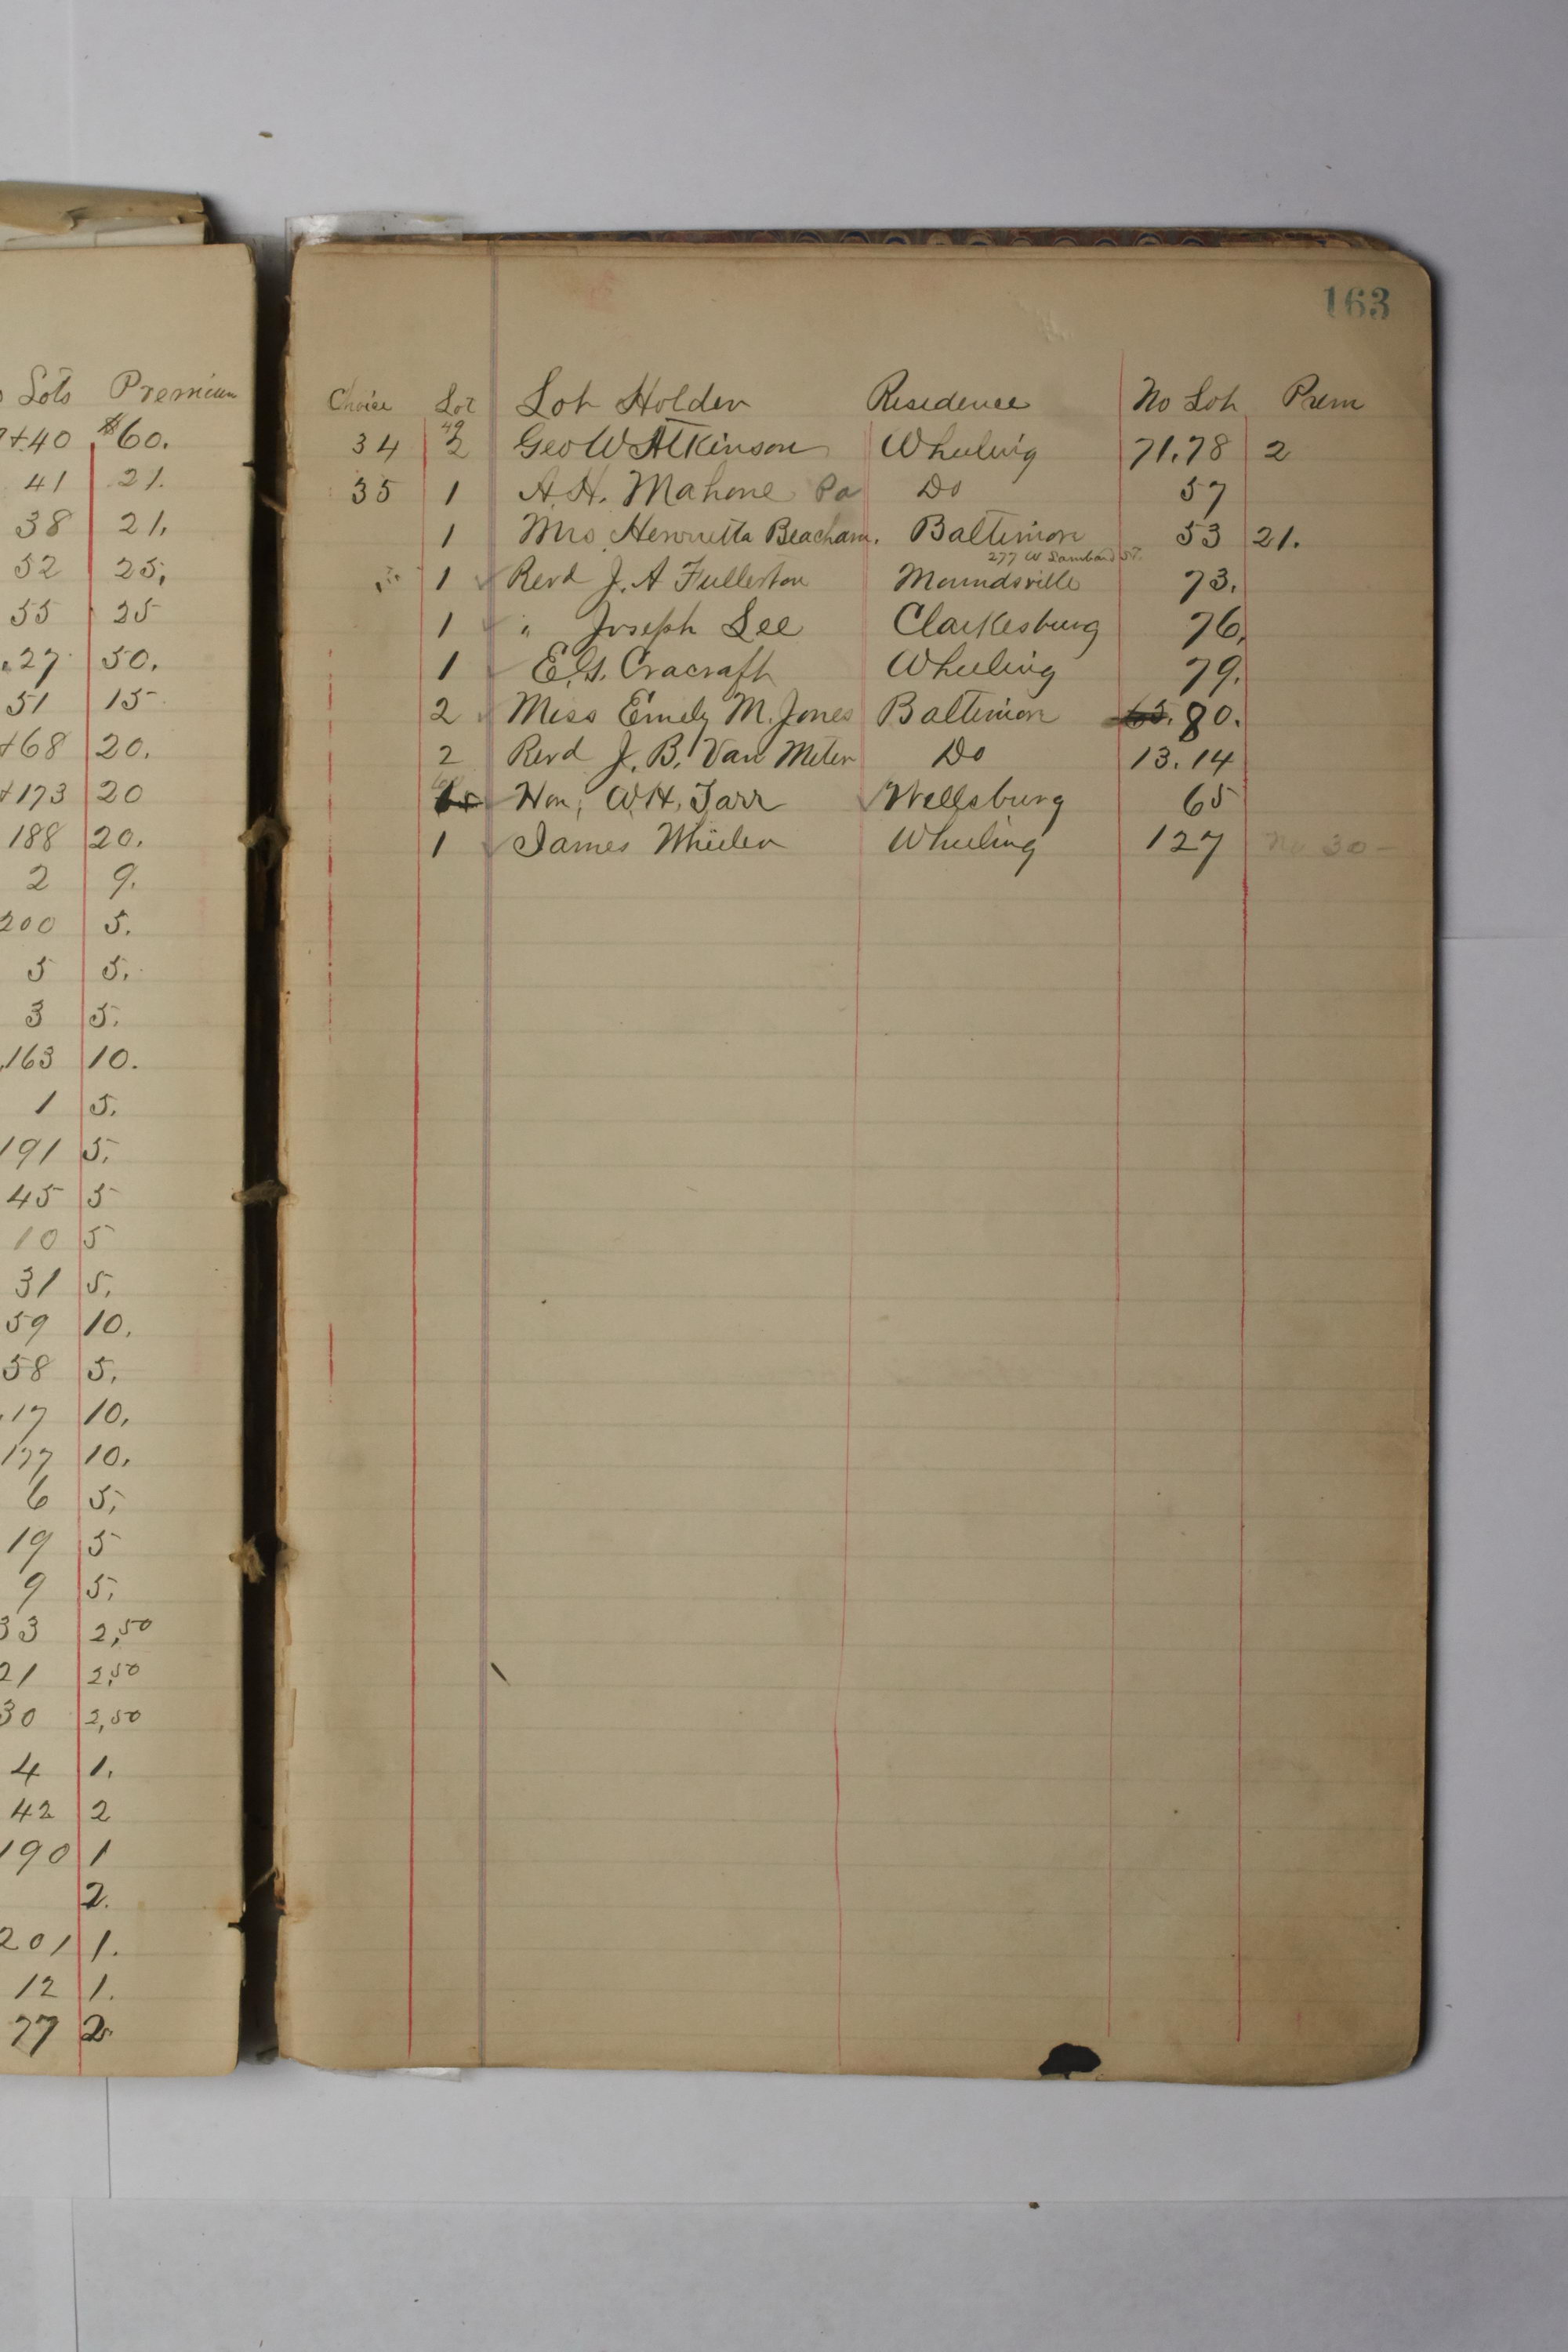 Lots Premium
+40 $60.
41 21.
38 21.
52 25.
55 25
27 50.
51 15
+68 20.
+173 20
188 20.
2 9.
200 5.
5 5.
3 5.
163 10.
1 5.
191 5.
45 5
10 5
31 5.
59 10.
58 5.
17 10.
177 10.
6 5.
19 5
9 5.
33 2,50
21 2,50
30 2,50
4 1.
42 2
190 1
2.
201 1.
12 1.
77 2.
163
Choice Lot Lot Holder Residence No Lot Prem
34 2 Geo W Atkinson Wheeling 71.78 2
35 1 A. H. Mahone Pa Do 57
1 Mrs Henrietta Beacham. Baltimore 53 21.
277 W Lombard St.
1 Revd J. A Fullerton Moundsville 73.
1 " Joseph Lee Clarkesburg 76.
1 E. G. Cracraft Wheeling 79.
2 Miss Emely M. Jones Baltimore 65. 80.
2 Revd J. B. Van Meter Do 13.14
Hon. W. H. Tarr Wellsburg 65
1 James Wheeler Wheeling 127 No 30 –